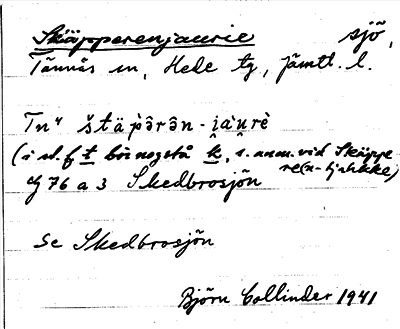 Skäpperenjaurie sjö,
Tännäs sn, Hede tg, Jämtl. l.
Tnⁿ štäpǝrǝn-jaurè
(i st. f. t bör nog stå k, s. anm. vid Skäppe-
re(n-tjahkke)
Ej 76 a 3 Skedbrosjön
Se Skedbrosjön
Björn Collinder 1941